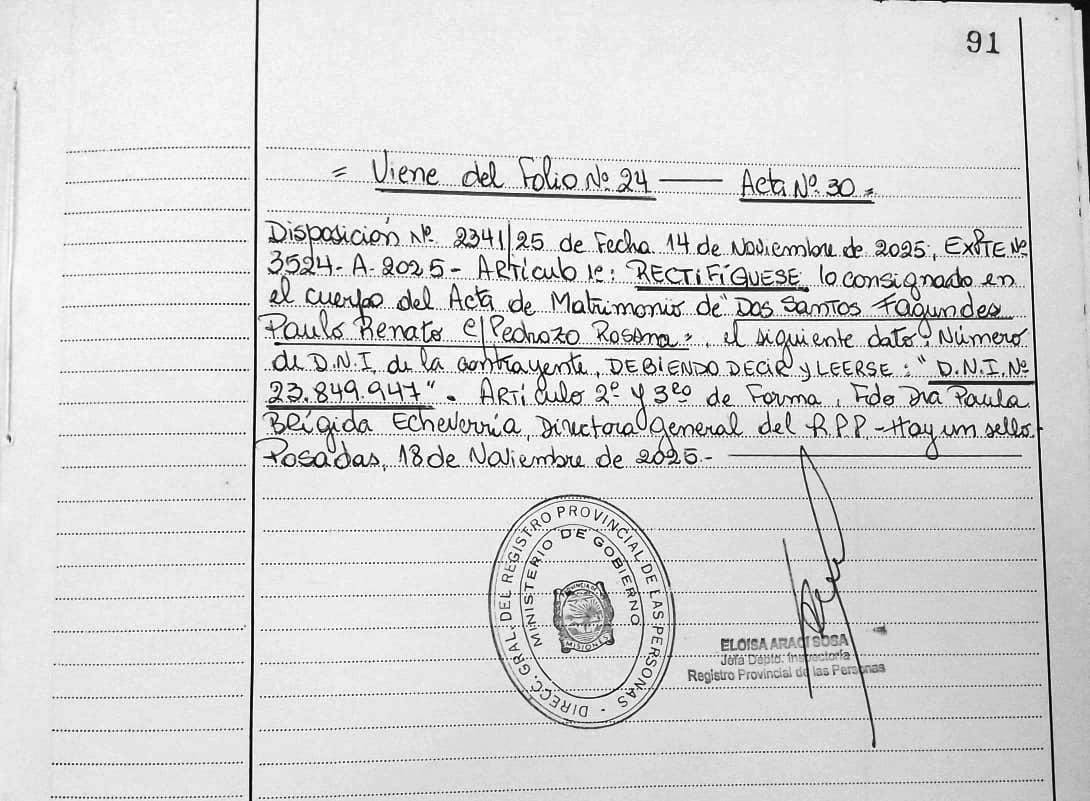 91
= Viene del Folio Nº 24 —— Acta Nº 30 =
Disposición Nº 2341/25 de Fecha 14 de Noviembre de 2025, EXPTE Nº
3524-A-2025- ARTículo 1º: RECTIFÍQUESE lo consignado en
el cuerpo del Acta de Matrimonio de "Dos Santos Fagundes
Paulo Renato c/ Pedrozo Rosana", el siguiente dato: Número
de D.N.I. de la contrayente, DEBIENDO DECIR y LEERSE: "D.N.I. Nº
23.849.947". ARTículo 2º y 3ero de Forma. Fdo Dra Paula
Brígida Echeverría, Directora General del R.P.P - Hay un sello.
Posadas, 18 de Noviembre de 2025.-
DIRECC. GRAL. DEL REGISTRO PROVINCIAL DE LAS PERSONAS -
MINISTERIO DE GOBIERNO
PROVINCIA DE
MISIONES
ELOISA ARACI SOSA
Jefa Depto. Inspectoría
Registro Provincial de las Personas